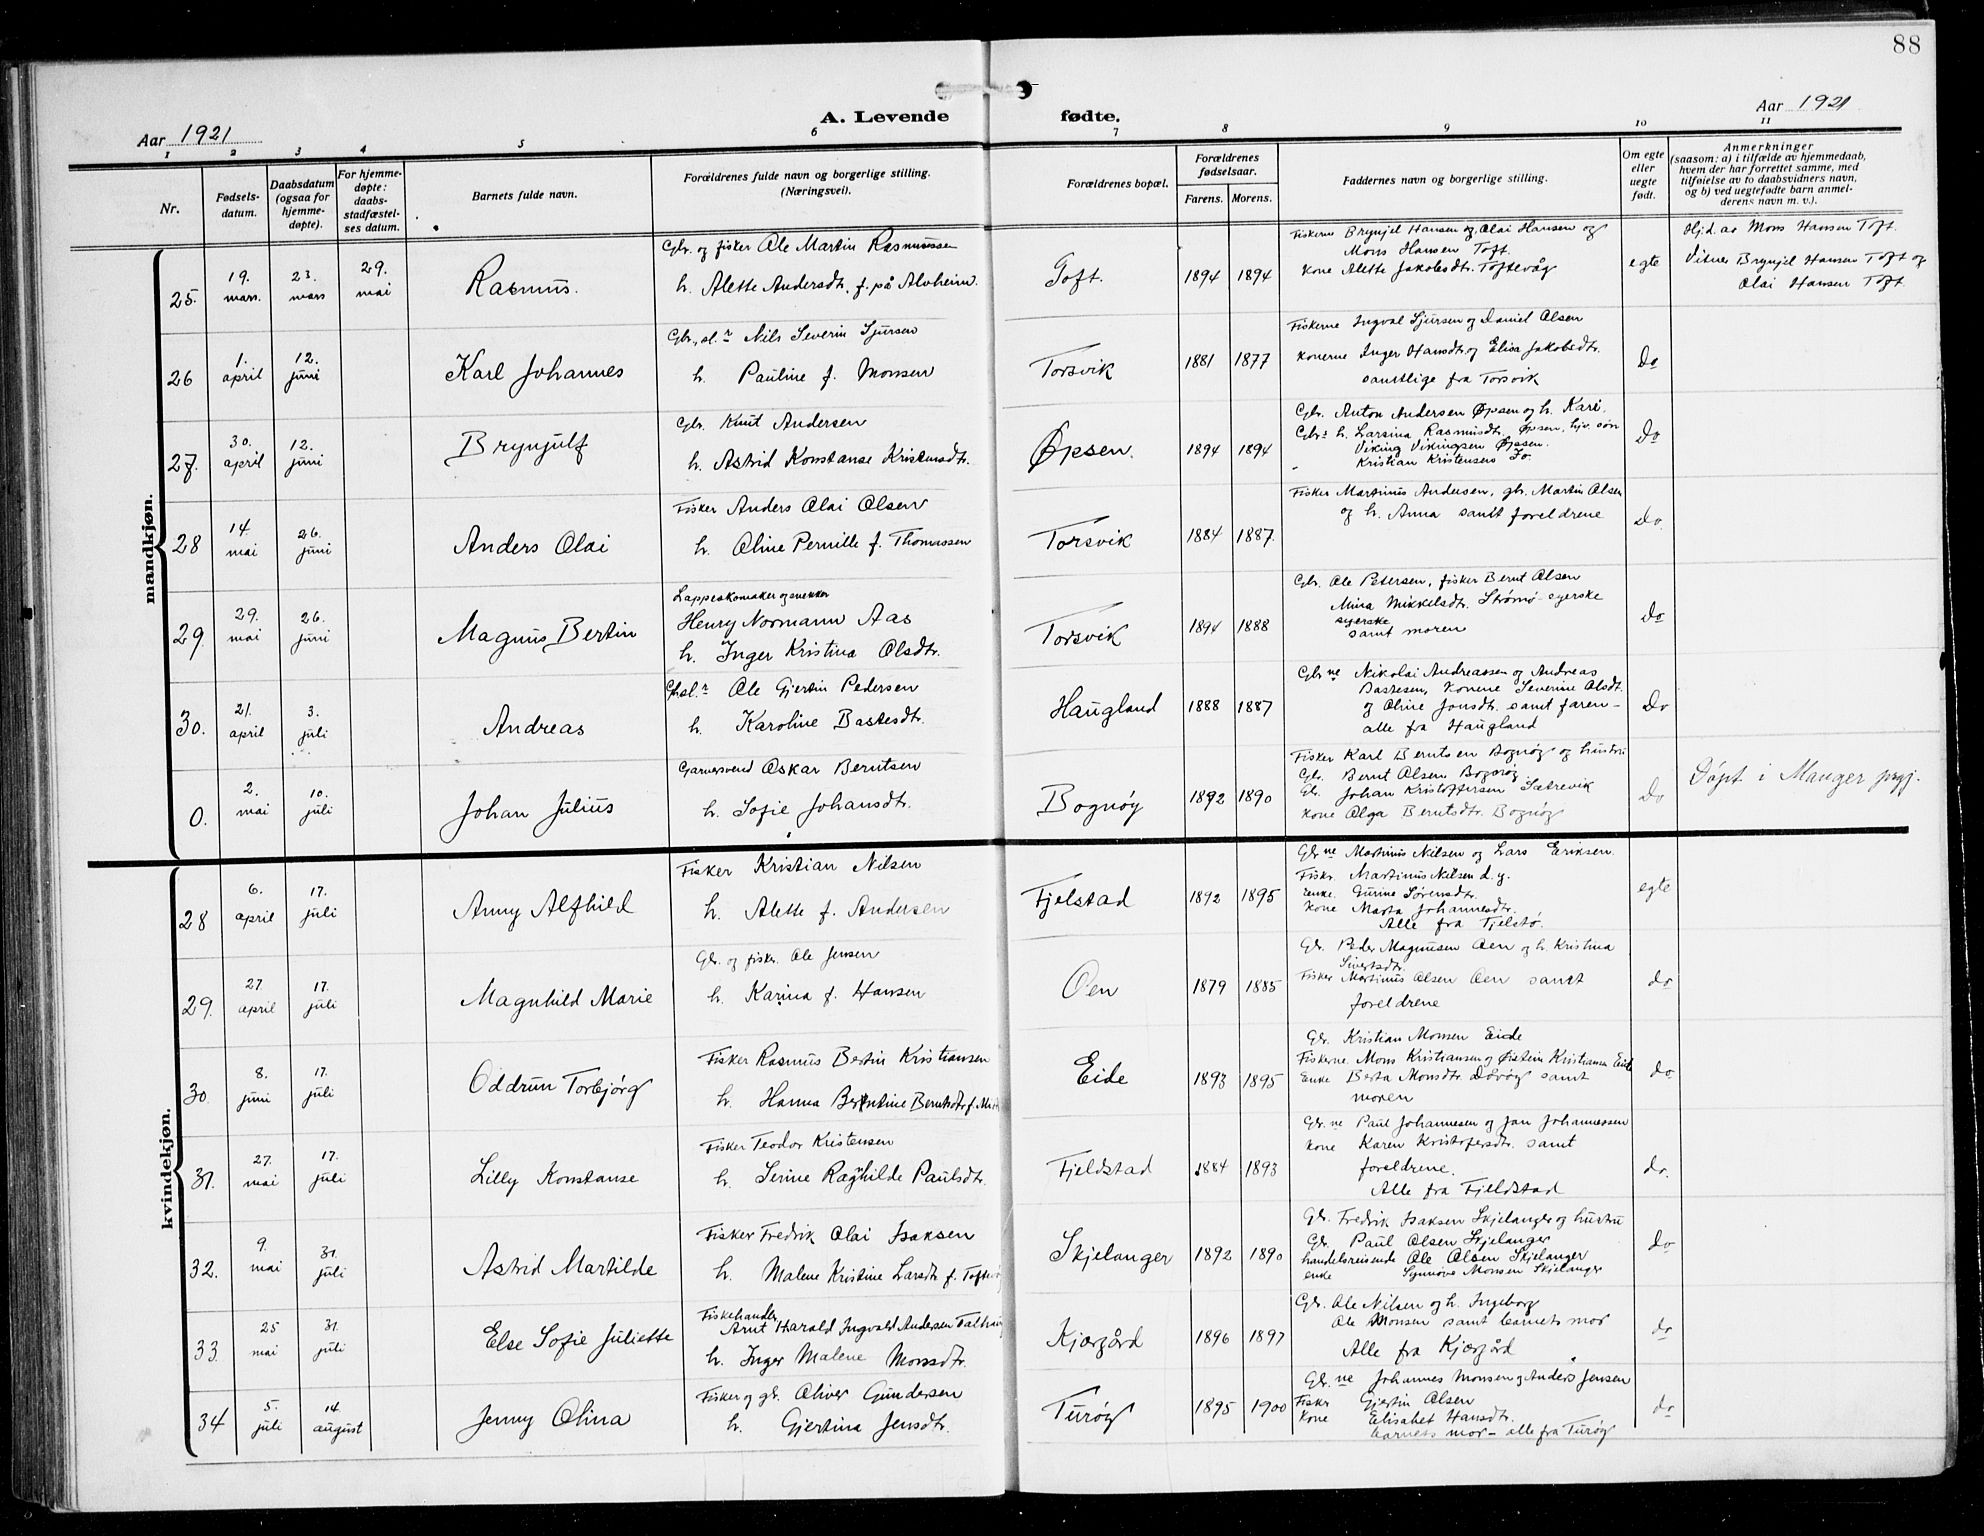 88
Aar 1921
A. Levende fødte.
Aar 1921
1 2 3 4 5 6 7 8 9 10 11
Nr.
Fødsels-
datum.
Daabsdatum
(ogsaa for
hjemme-
døpte).
For hjemme-
døpte:
daabs-
stadfæstel-
ses datum.
Barnets fulde navn.
Forældrenes fulde navn og borgerlige stilling.
(Næringsvei).
Forældrenes bopæl.
Forældrenes
fødselsaar.
Farens. Morens.
Faddernes navn og borgerlige stilling.
Om egte
eller
uegte
født.
Anmerkninger
(saasom: a) i tilfælde av hjemmedaab,
hvem der har forrettet samme, med
tilføielse av to daabsvidners navn,
og b) ved uegtefødte barn anmel-
derens navn m. v.).
mandkjøn.
25. 19. mars. 23. mars 29. mai
Rasmus.
Gbr. og fisker Ole Martin Rasmussen
h. Alette Andersdt. f. på Alvheim.
Toft. 1894 1894
Fiskerne Brynjel Hansen og Olai Hansen og
Mons Hansen Toft.
Kone Alette Jakobsdt. Toftevåg
egte
Hj.d. av Mons Hansen Toft.
Vitner Brynjel Hansen Toft og
Olai Hansen Toft.
26 1. april 12. juni
Karl Johannes
Nils Severin Sjursen
h. Pauline f. Monsen
Torsvik 1881 1877
Fiskerne Ingval Sjursen og Daniel Olsen
konerne Inger Hansdt. og Elisa Jakobsdt.
samtlige fra Torsvik
Do
27. 30. april 12. juni
Brynjulf
Gbr. Knut Andersen
h. Astrid Konstanse Kristensdt.
Øpsen. 1894 1894
Gbr. Anton Andersen Øpsen og h. Kari.
Gbr. h. Larsina Rasmusdt. Øpsen, hjv. søn
Viking Vikingsen Øpsen.
Kristian Kristensen Do.
Do
28 14. mai 26. juni
Anders Olai
Fisker Anders Olai Olsen
h. Oline Pernille f. Thomassen
Torsvik 1884 1887.
Fisker Martinus Andersen, gbr. Martin Olsen
og h. Anna samt foreldrene
Do.
29. 29. mai 26. juni
Magnus Bertin
Lappeskomaker og snekker
Henry Normann Aas
h. Inger Kristina Olsdt.
Torsvik 1894 1888
Gbr. Ole Petersen, fisker Bernt Olsen
Mina Mikkelsdt. Strømø syerske
syerske
samt moren
Do
30. 21. april 3. juli
Andreas
Ole Gjertin Pedersen
h. Karoline Bastesdt.
Haugland 1888 1887
Gbr.ne Nikolai Andreassen og Andreas
Bastesen, Konene Severine Olsdt.
og Oline Jonsdt. samt faren -
alle fra Haugland
Do
0. 2. mai 10. juli
Johan Julius
Garversvend Oskar Berntsen
h. Sofie Johansdt.
Bognøy 1892 1890
Fisker Karl Berntsen Bognøy og hustru
Gbr. Bernt Olsen Bognøy
Gbr. Johan Kristoffersen Sætrevik
Kone Olga Berntsdt. Bognøy
Do
Døpt i Manger prgj.
kvindekjøn.
28 6. april 17. juli
Anny Alfhild
Fisker Kristian Nilsen
h. Alette f. Andersen
Fjelstad 1892 1895
Gbr.ne Martinus Nilsen og Lars Eriksen.
Fiskr. Martinus Nilsen d.y.
Enke. Gurine Sørensdt.
Kone Marta Johannesdt.
Alle fra Fjelstø.
egte
29. 27. april 17. juli
Magnhild Marie
Gbr. og fisker. Ole Jensen
h. Karina f. Hansen
Oen 1879 1885
Gbr. Peder Magnusen Oen og h. Kristina
Sivertsdt.
Fisker Martinus Olsen Oen samt
foreldrene
do
30. 8. juni 17. juli
Oddrun Torbjørg
Fisker Rasmus Bertin Kristiansen
h. Hanna Berntine Berntsdt.
Eide 1893 1895
Gbr. Kristian Monsen Eide
Fiskerne Mons Kristiansen og Øistein Kristiansen Eide
Enke Berta Monsdt. samt
moren
do
31. 27. mai 17. juli
Lilly Konstanse
Fisker Teodor Kristensen
h. Serine Raghilde Paulsdt.
Fjeldstad 1884 1893
Gbr.ne Paul Johannesen og Jan Johannessen
Kone Karen Kristofersdt. samt
foreldrene.
Alle fra Fjeldstad
do.
32. 9. mai 31. juli
Astrid Martilde
Fisker Fredrik Olai Isaksen
h. Malene Kristine Larsdt.
Skjelanger 1892 1890
Gbr. Fredrik Isaksen Skjelanger og hustru
Gbr. Paul Olsen Skjelanger
handelsreisende Ole Olsen Skjelanger
enke Synnøve Monsen Skjelanger
do
33. 25 mai 31. juli
Else Sofie Juliette
Fiskehandler
Arnt Harald Ingvald Andersen
h. Inger Malene Monsdt.
Kjærgård 1896 1897
Gbr. Ole Nilsen og h. Ingeborg
Ole Monsen samt barnets mor
Alle fra Kjærgård
do
34 5. juli 14. august
Jenny Olina
Fisker og gbr. Oliver Gundersen
h. Gjertina Jensdt.
Turøy 1895 1900
Gbr.ne Johannes Monsen og Anders Jensen
Fisker Gjertin Olsen
Kone Elisabet Hansdt.
barnets mor - alle fra Turøy
do